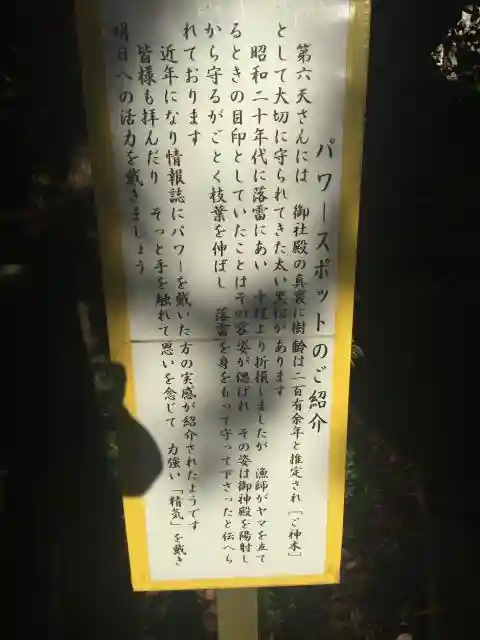 パワースポットのご紹介
第六天さんには 御社殿の真裏に樹齢は二百有余年と推定され「ご神木」
として大切に守られてきた太い黒松があります
昭和二十年代に落雷にあい 中程より折損しましたが 漁師がヤマを立て
るときの目印としていたことはその容姿が偲ばれ その姿は御神殿を陽射し
から守るがごとく枝葉を伸ばし 落雷を身をもって守って下さったと伝へら
れております
近年になり情報誌にパワーを戴いた方の実感が紹介されたようです
皆様も拝んだり そっと手を触れて思いを念じて 力強い「精気」を戴き
明日への活力を戴きましょう